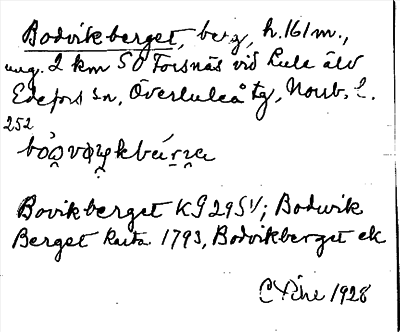 Bodvikberget, berg, h. 161 m.,
ung. 2 km SO Forsnäs vid Lule älv
Edefors sn, Överluleå tg, Norrb. l.
252
Bovikberget KG 29SV; Boduvik
Berget Karta 1793, Bodvikberget ek
1928